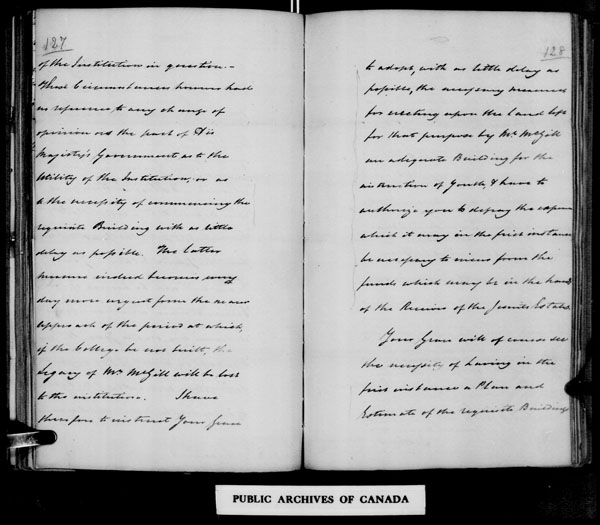 127
of the Institution in question.—
These Circumstances however had
no reference to any change of
opinion on the part of His
Majesty's Government as to the
Utility of the Institution, or as
to the necessity of commencing the
requisite Building with as little
delay as possible. This latter
measure indeed becomes every
day more urgent from the near
approach of the period at which,
if the College be not built, the
Legacy of Mr. McGill will be lost
to the institution. I have
therefore to instruct Your Grace
128
to adopt, with as little delay as
possible, the necessary measures
for erecting upon the Land left
for that purpose by Mr. McGill
an adequate Building for the
instruction of Youth, & have to
authorize you to defray the expense
which it may in the first instance
be necessary to incur from the
funds which may be in the hands
of the Receiver of the Jesuits Estates.
Your Grace will of course see
the necessity of having in the
first instance a Plan and
Estimate of the requisite Buildings
PUBLIC ARCHIVES OF CANADA